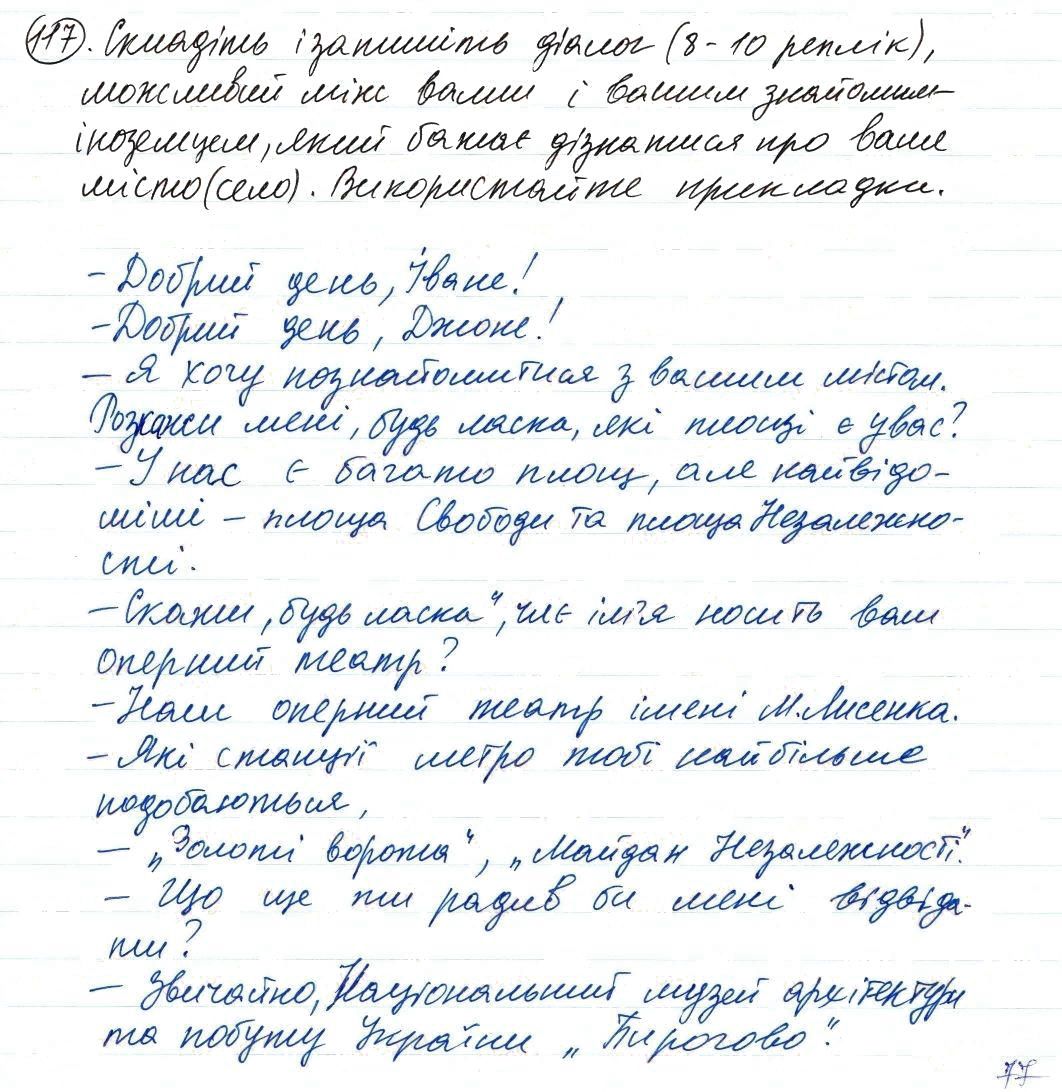 117. Складіть і запишіть діалог (8-10 реплік),
можливий між вами і вашим знайомим-
іноземцем, який бажає дізнатися про ваше
місто (село). Використайте приклади.
- Добрий день, Іване!
- Добрий день, Джоне!
- Я хочу познайомитися з вашим містом.
Розкажи мені, будь ласка, які площі є у вас?
- У нас є багато площ, але найвідо-
міші - площа Свободи та площа Незалежно-
сті.
- Скажи „будь ласка", чиє ім'я носить ваш
оперний театр?
- Наш оперний театр імені М. Лисенка.
- Які станції метро тобі найбільше
подобаються,
- „Золоті ворота", „Майдан Незалежності".
- Що ще ти радив би мені відвіда-
ти?
- Звичайно, Національний музей архітектури
та побуту України „Пирогово".
77